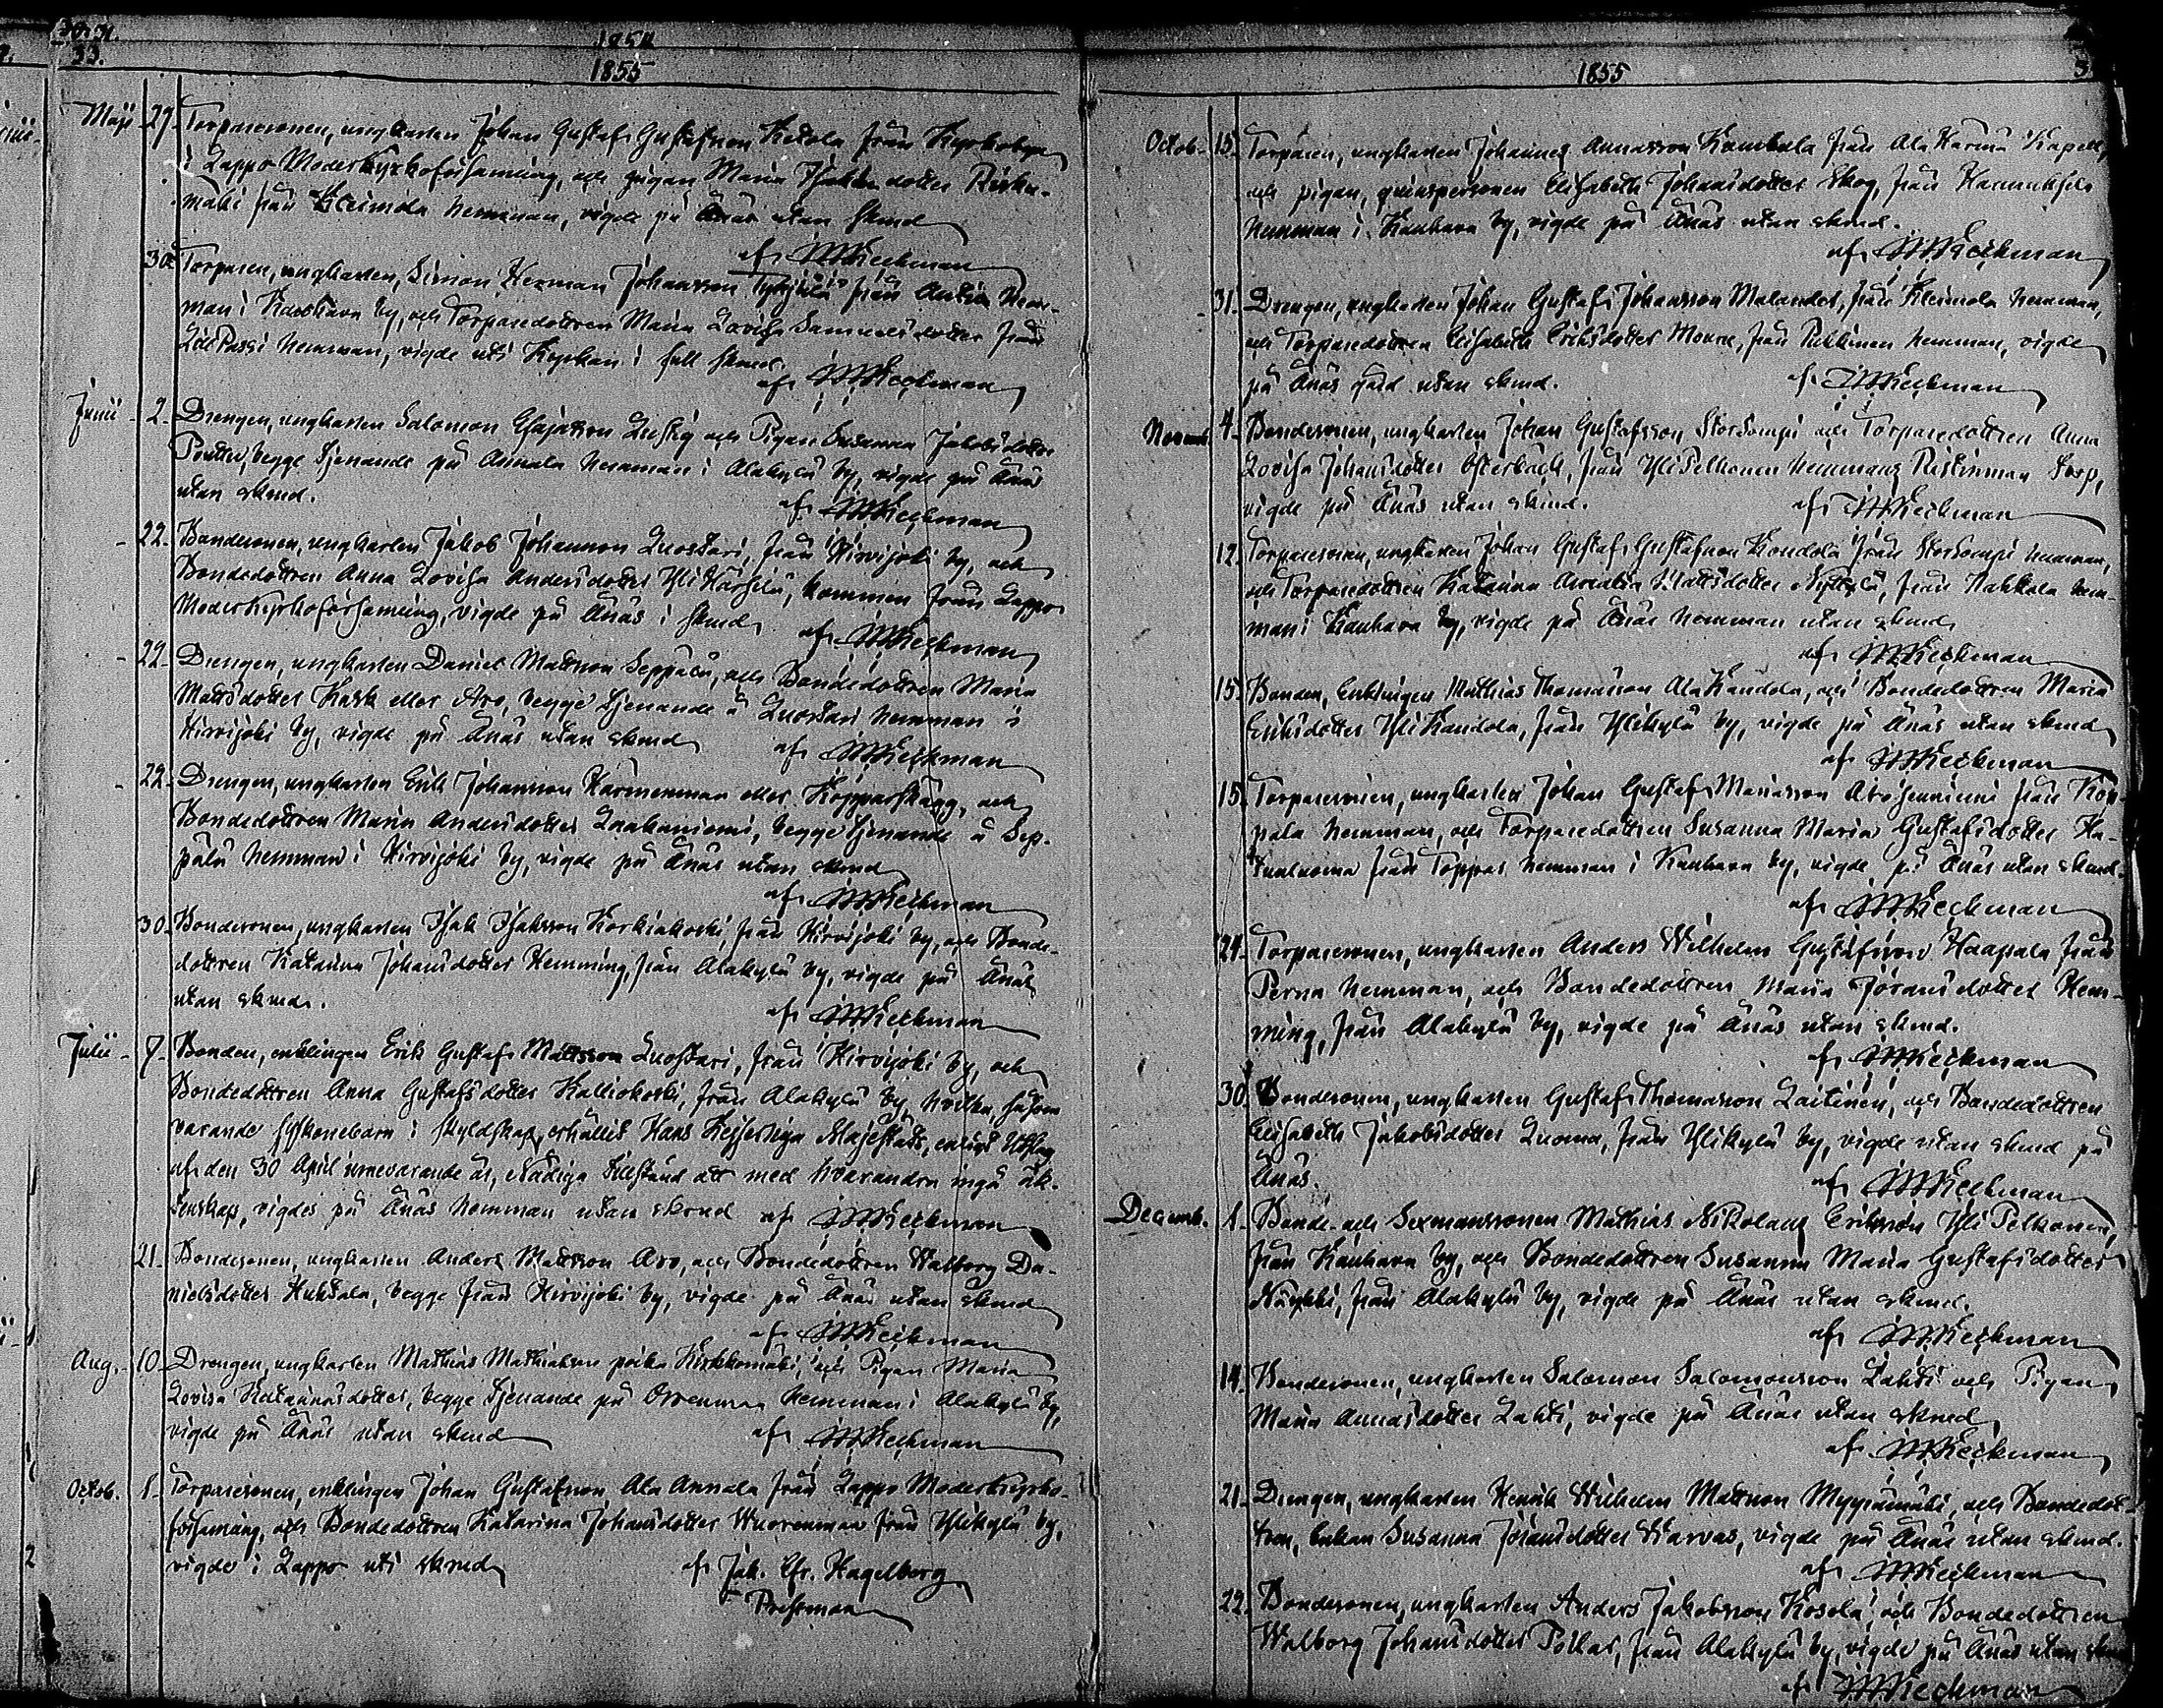 33.
1855
Maji 27. Torparesonen, ungkarlen Johan Gustaf Gustafsson Ketola från Kyrkobyn
i Lappo Moderkyrkoförsamling, och pigan Maria Isaksdotter
mäki från Kleimola hemman, vigde på Ånäs utan skrud
af Keckman
30. Torparen, ungkarlen, Simon Herman Johansson från hem-
man i Kauhava by, och Torparedottren Maria Lovisa Samuelsdotter från
Passi hemman, vigde uti Kyrkan i full skrud.
af Keckman
Junii - 2. Drengen, ungkarlen Salomon Esajasson Lustig och Pigan Susanna Jakobsdotter
begge tjenande på Annala hemman i Alakylä by, vigde på Ånäs
utan skrud.
af Keckman
- 22. Bondesonen, ungkarlen Jakob Johansson Luostari, från Hirvijoki by, och
Bondedottren Anna Lovisa Andersdotter Yli kommen från Lappo
Moderkyrkoförsamling, vigde på Ånäs i skrud,
af Keckman
- 22. Drengen, ungkarlen Daniel Mattsson Seppälä, och Bondedottren Maria
Mattsdotter Kark eller Aro, begge tjenande å Luostari hemman i
Hirvijoki by, vigde på Ånäs utan skrud
af Keckman
- 22. Drengen, ungkarlen Erik Johansson Härmenmaa eller Kopparskägg, och
Bondedottren Maria Andersdotter Laakaniemi, begge tjenande å Sep-
pälä hemman i Hirvijoki by, vigde på Ånäs utan skrud
af Keckman
30. Bondesonen, ungkarlen Isak Isaksson Korkiakoski, från Hirvijoki by, och Bonde-
dottren Katarina Johansdotter Hemming, från Alakylä by, vigde på Ånäs
utan skrud.
af Keckman
Julii - 7. Bonden, enklingen Erik Gustaf Mattsson Luostari, från Hirvijoki by, och
Bondedottren Anna Gustafsdotter Kalliokoski, från Alakylä by, hvilka, såsom
varande syskonebarn i skyldskap, erhållit Hans Kejserliga Majestäts, enligt Utslag
af den 30 April innevarande år, Nådiga tillstånd att med hvarandra ingå äk-
tenskap, vigdes på Ånäs hemman utan skrud af Keckman
21. Bondesonen, ungkarlen Anders Mattsson Aro, och Bondedottren Walborg Da-
nielsdotter Huhtala, begge från Hirvijoki by, vigde på Ånäs utan skrud
af Keckman
Aug. - 10. Drengen, ungkarlen Mathias Mathiasson poika Kirkkomäki, och Pigan Maria
Lovisa Katarinasdotter, begge tjenande på Orrenmaa hemman i Alakylä by,
vigde på Ånäs utan skrud af Keckman
Octob. 1. Torparesonen, enklingen Johan Gustafsson Ala Annala från Lappo Moderkyrko-
församling, och Bondedottren Katarina Johansdotter Wuorenmaa från Ylikylä by,
vigde i Lappo uti skrud af Jak. Efr. Hagelberg
Prestman
1855
Octob. 15. Torparen, ungkarlen Johannes Annasson Kambala från Ala Härmä Kapell,
och pigan, qvinspersonen Elisabeth Johansdotter Skog, från
hemman i Kauhava by, vigde på Ånäs utan skrud.
af Keckman
31. Drengen, ungkarlen Johan Gustaf Johansson Malander, från Kleimola hemman,
och Torparedottren Elisabeth Eriksdotter från Pukkinen hemman, vigde
på Ånäs gård utan skrud. af Keckman
Novemb. 4. Bondesonen, ungkarlen Johan Gustafsson StorSompi och Torparedottren Anna
Lovisa Johansdotter Österback, från Yli Pelkonen hemmans Ristinmaa torp,
vigde på Ånäs utan skrud. af Keckman
12. Torparesonen, ungkarlen Johan Gustaf Gustafsson Kondola från StorSompi hemman,
och Torparedottren Katarina Amalia Mattsdotter från Hakkola hem-
man i Kauhava by, vigde på Ånäs hemman utan skrud
af Keckman
15. Bonden, Enklingen Mathias Thomasson Ala Kandola, och Bondedottren Maria
Eriksdotter Yli Kandola, från Ylikylä by, vigde på Ånäs utan skrud
af Keckman
15. Torparesonen, ungkarlen Johan Gustaf Mariasson från
pala hemman, och Torparedottren Susanna Maria Gustafsdotter
från Toppas hemman i Kauhava by, vigde på Ånäs utan skrud.
af Keckman
Torparesonen, ungkarlen Anders Wilhelm Gustafsson Haapala från
Perna hemman, och Bondedottren Maria Jöransdotter Hem-
ming, från Alakylä by, vigde på Ånäs utan skrud.
af Keckman
30. Bondesonen, ungkarlen Gustaf Thomasson Laitinen, och Bondedottren
Elisabeth Jakobsdotter Luoma, från Ylikylä by, vigde utan skrud på
Ånäs. af Keckman
Decemb. 1. Bonde- och Sexmanssonen Mathias Nikolaus Eriksson Yli Pelkonen,
från Kauhava by, och Bondedottren Susanna Maria Gustafsdotter
från Alakylä by, vigde på Ånäs utan skrud.
af Keckman
14. Bondesonen, ungkarlen Salomon Salomonsson Lahti och Pigan
Maria Annasdotter Lahti, vigde på Ånäs utan skrud,
af Keckman
21. Drengen, ungkarlen Henrik Wilhelm Mattsson Myyrämäki, och Bondedot-
tren, Enkan Susanna Jöransdotter Warvas, vigde på Ånäs utan skrud.
af Keckman
22. Bondesonen, ungkarlen Anders Jakobsson Kosola, och Bondedottren
Walborg Johansdotter Potkas, från Alakylä by, vigde på Ånäs utan
af Keckman